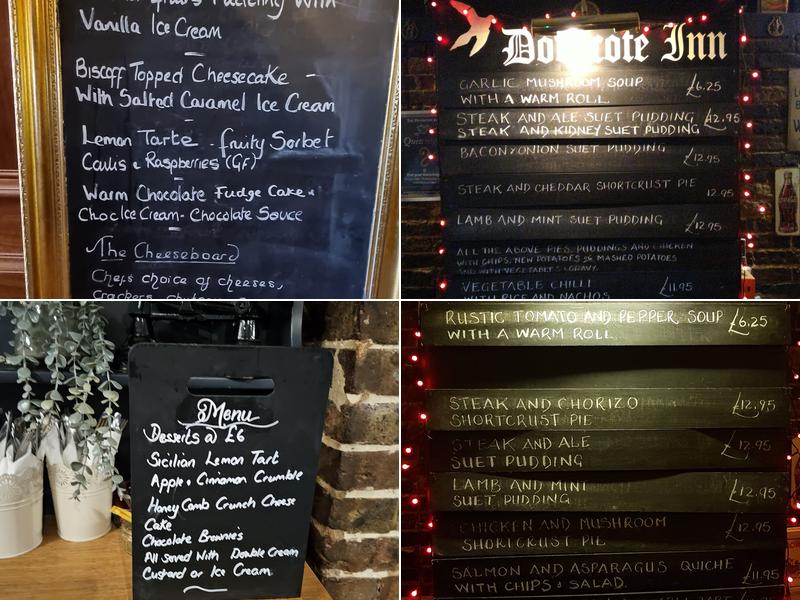 Pudding With
Vanilla Ice Cream
Biscoff Topped Cheesecake -
With Salted Caramel Ice Cream
Lemon Tarte - fruity Sorbet
Coulis & Raspberries (GF)
Warm Chocolate Fudge Cake &
Choc Ice Cream - Chocolate Sauce
The Cheeseboard
Chefs choice of cheeses,
Crackers, chutney
Dovecote Inn
GARLIC MUSHROOM SOUP
WITH A WARM ROLL. £6.25
STEAK AND ALE SUET PUDDING £12.95
STEAK AND KIDNEY SUET PUDDING
BACON & ONION SUET PUDDING £12.95
STEAK AND CHEDDAR SHORTCRUST PIE 12.95
LAMB AND MINT SUET PUDDING £12.95
ALL THE ABOVE PIES, PUDDINGS AND CHICKEN
WITH CHIPS, NEW POTATOES OR MASHED POTATOES
AND WITH VEGETABLES & GRAVY.
VEGETABLE CHILLI £11.95
WITH RICE AND NACHOS
Menu
Desserts @ £6
Sicilian Lemon Tart
Apple & Cinnamon Crumble
Honey Comb Crunch Cheese
Cake
Chocolate Brownie's
All Served With Double Cream
Custard or Ice Cream
RUSTIC TOMATO AND PEPPER SOUP £6.25
WITH A WARM ROLL
STEAK AND CHORIZO £12.95
SHORTCRUST PIE
STEAK AND ALE £12.95
SUET PUDDING
LAMB AND MINT £12.95
SUET PUDDING
CHICKEN AND MUSHROOM £12.95
SHORTCRUST PIE
SALMON AND ASPARAGUS QUICHE £11.95
WITH CHIPS & SALAD.